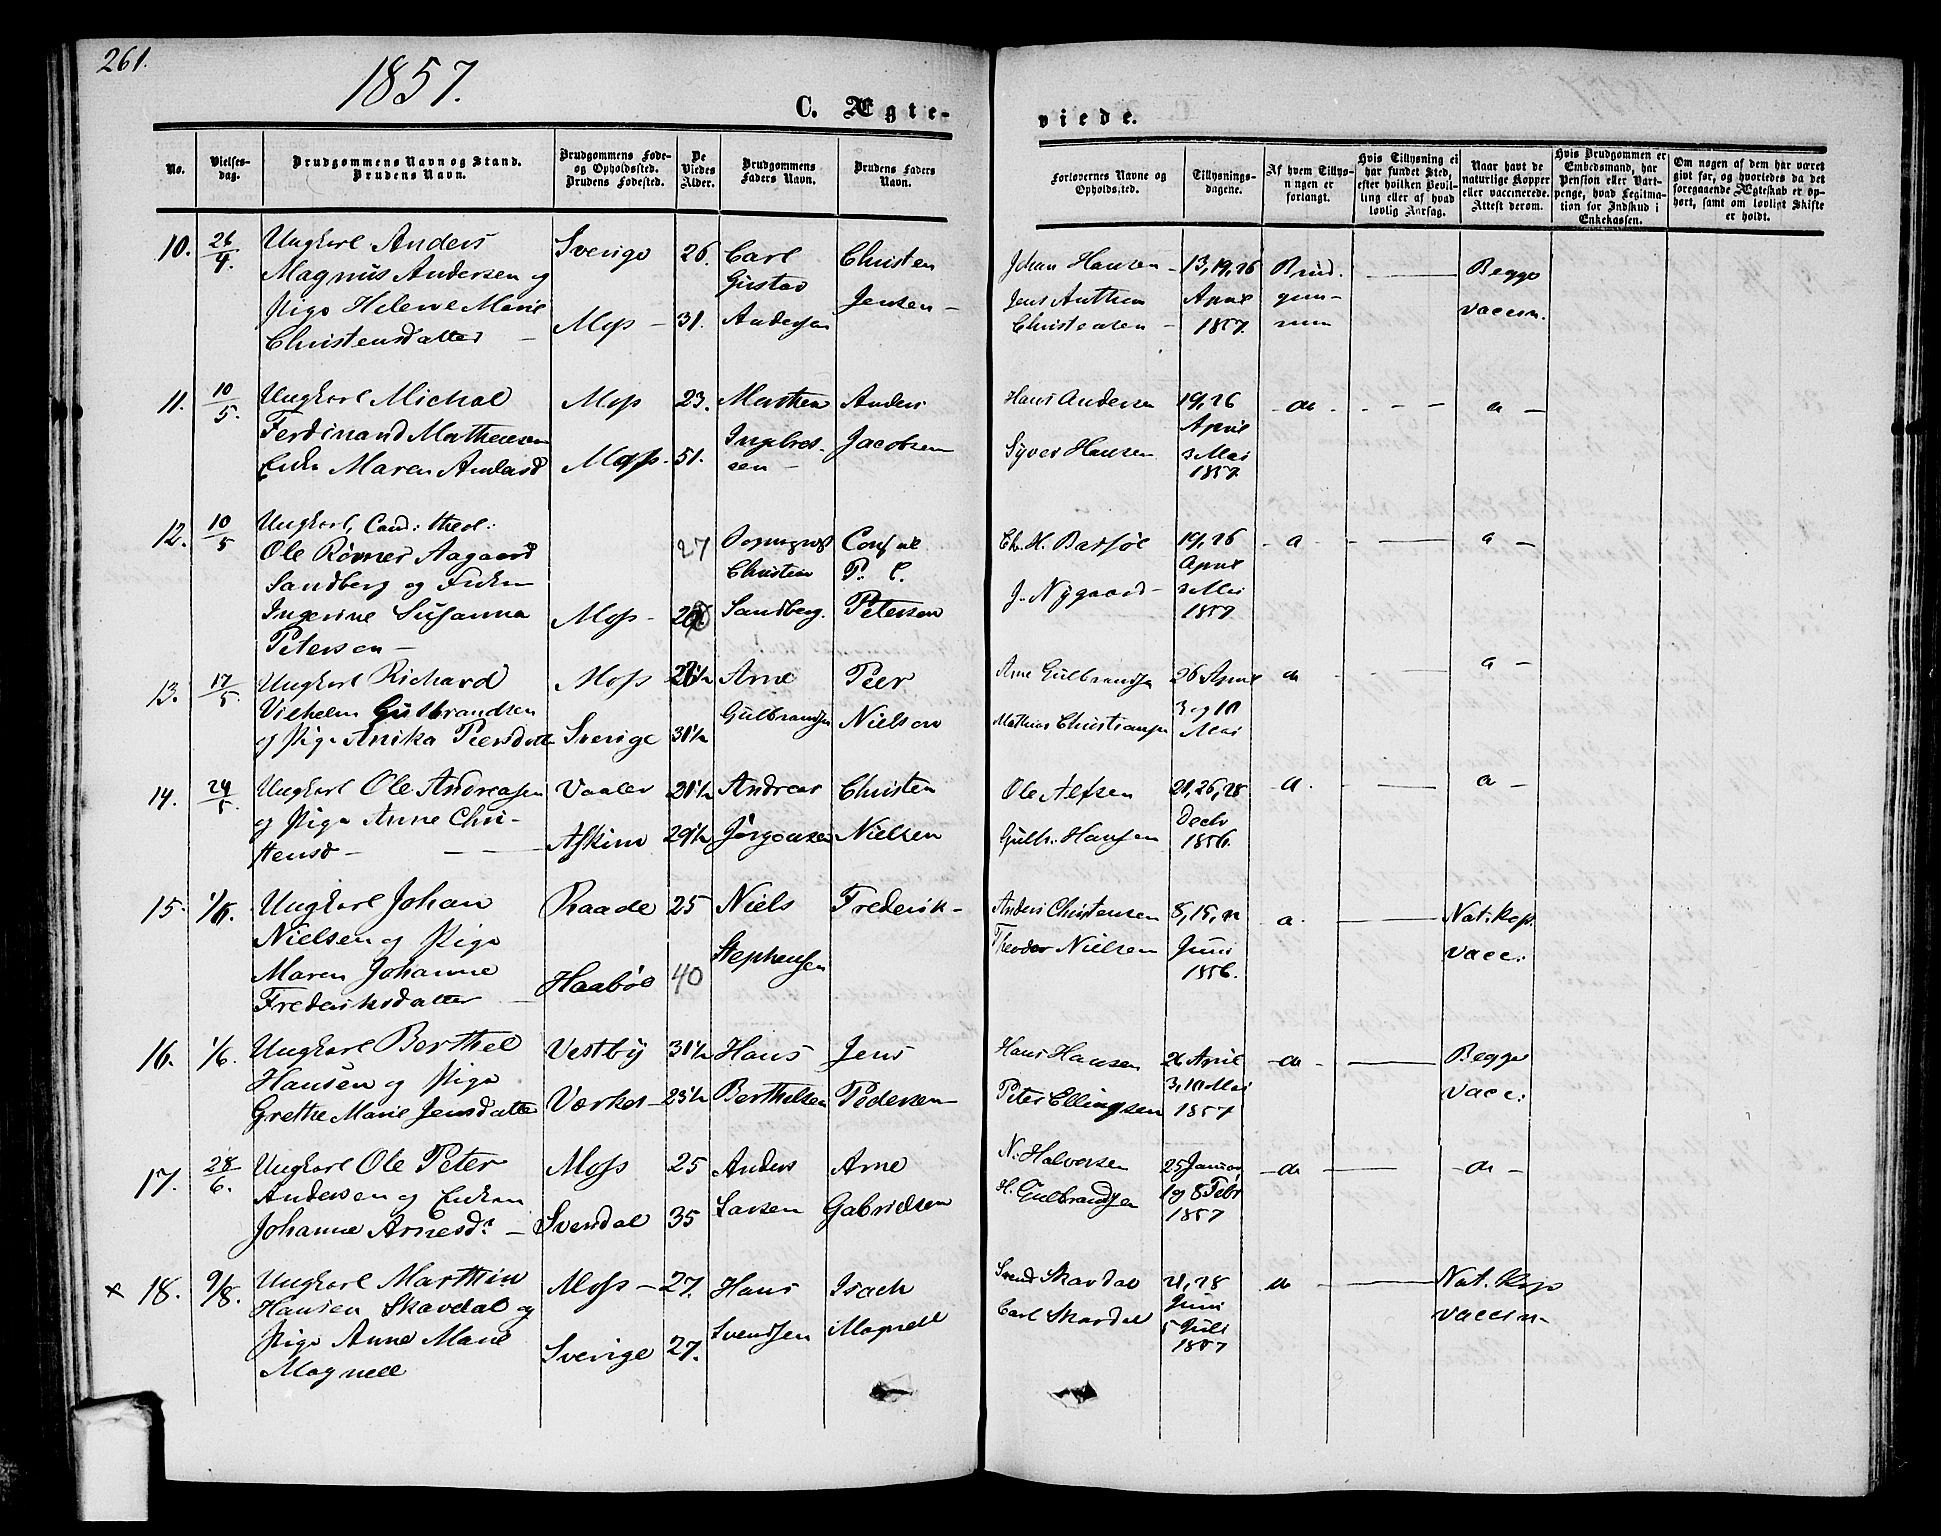 261.
1857.
C. Ægte-
viede.
No.
Vielses-
dag.
Brudgommens Navn og Stand.
Brudens Navn.
Brudgommens Føde-
og Opholdssted.
Brudens Fødested.
De
Viedes
Alder.
Brudgommens
Faders Navn.
Brudens Faders
Navn.
Forlovernes Navne og
Opholdssted.
Tillysnings-
dagene.
Af hvem Tillys-
ningen er
forlangt.
Hvis Tillysning ei
har fundet Sted,
efter hvilken Bevil-
ling eller af hvad
lovlig Aarsag.
Naar havt de
naturlige Kopper
eller vaccinerede.
Attest derom.
Hvis Brudgommen er
Embedsmand, har
Pension eller Vart-
penge, hvad Legitima-
tion for Indskud i
Enkekassen.
Om nogen af dem har været
gift før, og hvorledes da det
foregaaende Ægteskab er op-
hørt, samt om lovligt Skifte
er holdt.
10. 26/4. Ungkarl Anders Sverige 26. Carl Christen Johan Hansen 13, 19, 26 Brud- Beggo
Magnus Andersen og Gustav Jensen Jens Anthon April gom- vaccin.
Pige Helene Marie Moss 31. Andersen Christensen 1857. men
Christensdatter
11. 10/5. Ungkarl Michal Moss 23. Marthen Anders Hans Andersen 19, 26 do a
Ferdinand Mathensen Ingebret- April
Enke Maren Moss 51. sen Jacobsen Syver Hansen 3 Mai
1857
12. 10/5 Ungkarl, Cand: theol: 27 Sogneprest Consul Ch. H. 19, 26 a a
Ole Rømer Aagaard Christian P. C. April
Sandberg og Frøken Moss Sandberg. Petersen J. Nygaard 3 Mai
Ingerine Susanna 1857
Petersen
13. 17/5 Ungkarl Richard Moss Arne Peer Arne Gulbrandsen 26 April do a
Vilhelm Gulbrandsen 3 og 10
og Pige Anika Peersdatter Sverige 31½ Gulbrandsen Nielson Mathias Christiansen Mai
14. 24/5 Ungkarl Ole Andreasen Vaaler 21½ Andreas Christen Ole Alfsen 21, 26, 28 a a
og Pige Anne Chri- Decbr
stensd Askim 29½ Jørgensen Nielsen Gulbr. Hansen 1856.
15. 1/6. Ungkarl Johan Raade 25 Niels Frederik Anders Christensen 8, 15, 22 a. Nat. Kop.
Nielsen og Pige Stephensen Theodor Nielsen Juni vacc:
Maren Johanne Haabøl 40 1856.
Frederiksdatter
16. 1/6. Ungkarl Berthel Vestby 31½ Hans Jens Hans Hansen 26 April do Begge
Hansen og Pige 3, 10 Mai vacc:
Grethe Marie Jensdatter Værket 23½ Berthelsen Pedersen Peter Ellingsen 1857
17. 28/6. Ungkarl Ole Peter Moss 25 Anders Arne N. Halvorsen 25 Januar, do do
Andersen og Enken H. Gulbrandsen 1 og 8 Febr
Johanne Arnesd: Svendal 35 Larsen Gabrielsen 1857
x 18. 9/8. Ungkarl Marthin Moss 27. Hans Isach Svend Skavdal 21, 28 do Nat. Kop
Hansen Skavdal og Carl Skavdal Juni vaccin
Pige Anne Marie Sverige 27. Svendsen Magnell 5 Juli
Magnell 1857